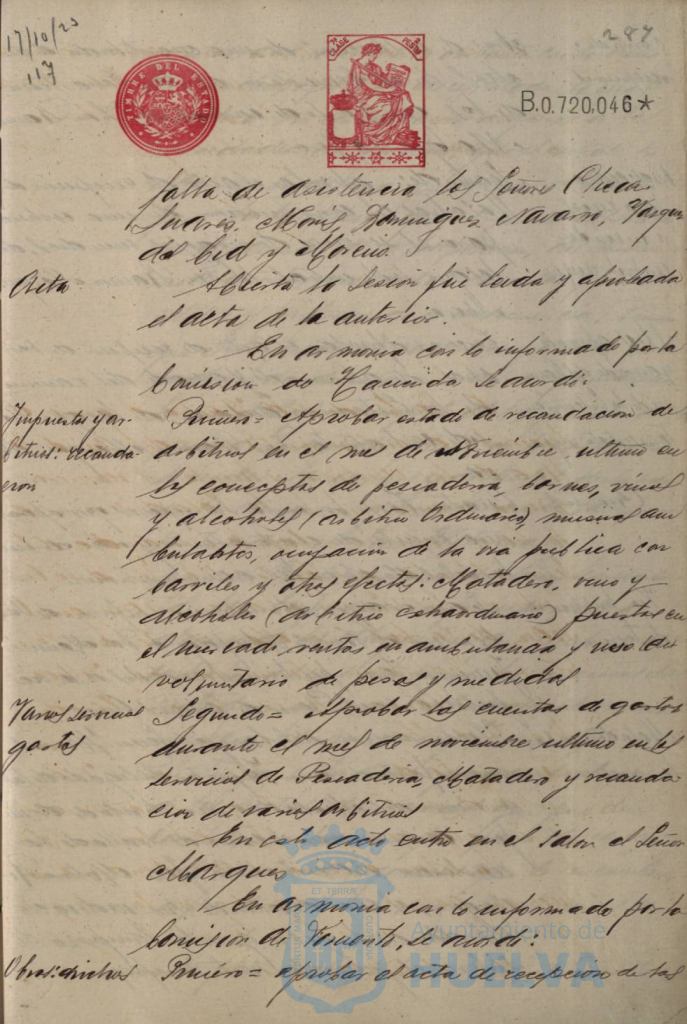 17/10/23
117
287
TIMBRE DEL ESTADO
CLASE
PESETAS
B.0.720,046*
falta de asistencia los Señores Checa
Suarez, Monis, Dominguez Navarro, Vazquez
del Cid y Moreno.
Acta
Abierta la sesion fué leida y aprobada
el acta de la anterior.
En armonia con lo informado por la
Comision de Hacienda se acordó:
Impuestos y ar-
bitrios: recauda-
cion
Primero= Aprobar estado de recaudación de
arbitrios en el mes de Noviembre ultimo en
los conceptos de pescaderia, carnes, vinos
y alcoholes (arbitrio Ordinario), musicas am
bulantes, ocupación de la via publica con
barriles y otros efectos: Matadero, vino y
alcoholes (arbitrio extraordinario) puestos en
el mercado, ventas en ambulancia y uso
voluntario de pesas y medidas
Varios servicios
gastos
Segundo= Aprobar las cuentas de gastos
durante el mes de noviembre ultimo en los
servicios de Pescaderia, Matadero y recauda-
cion de varios arbitrios
En este acto entró en el salon el Señor
Marquez
En armonia con lo informado por la
Comision de Fomento, se acordó:
Obras:
Primero= aprobar el acta de recepcion de las
Ayuntamiento de
HUELVA